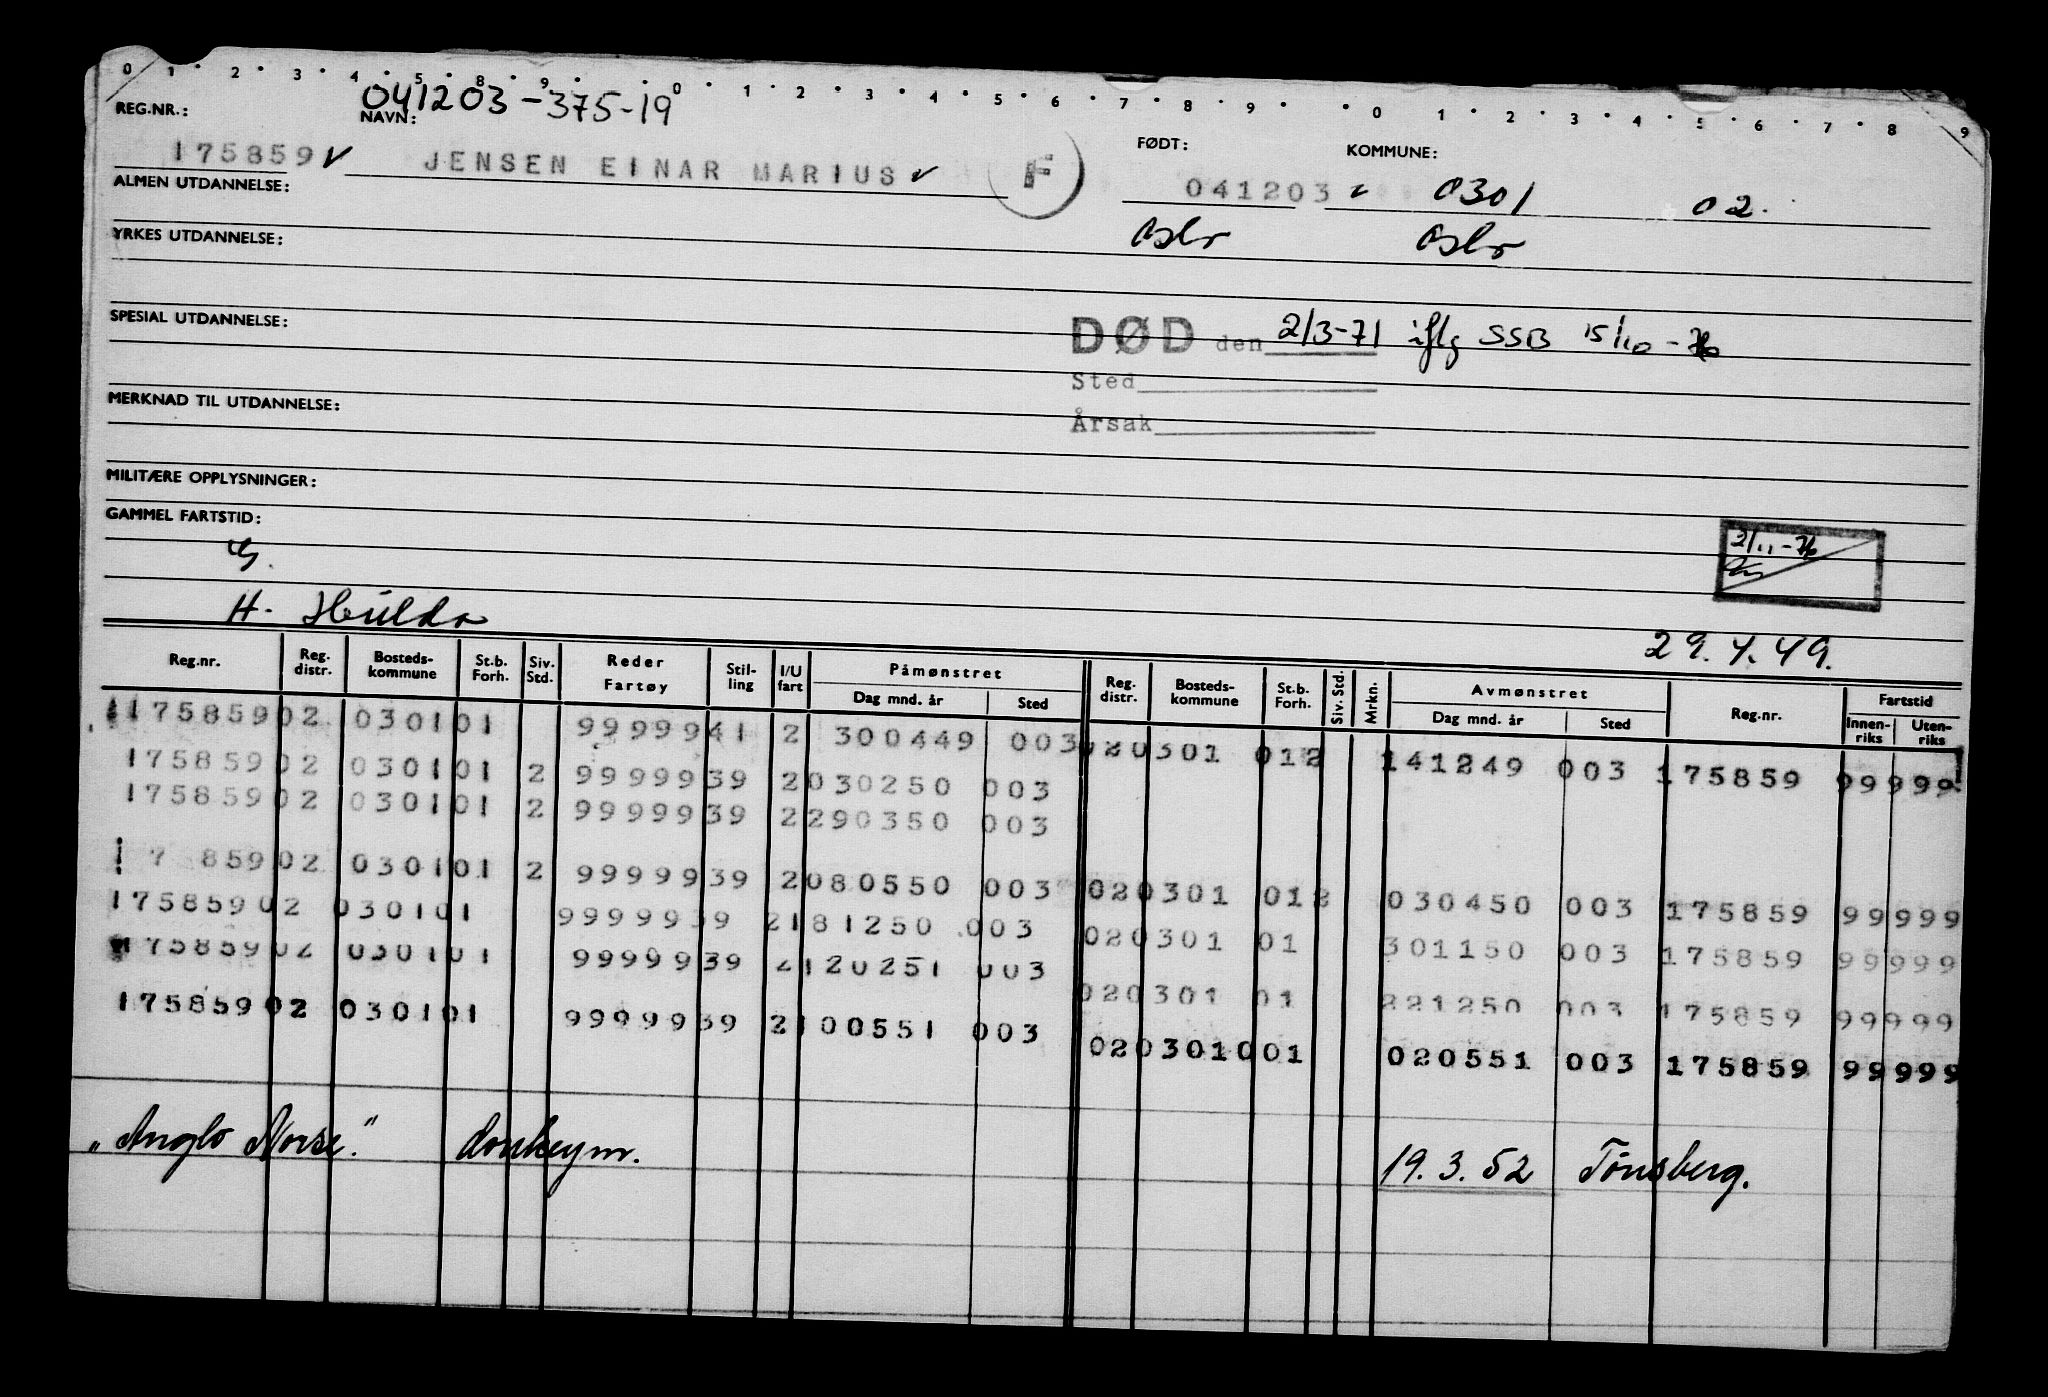 0 1 2 3 4 5 8 9 0 1 2 3 4 5 6 7 8 9 0 1 2 3 4 5 6 7 8 9
REG.NR.: 041203-375-19
NAVN: FØDT: KOMMUNE:
175859 JENSEN EINAR MARIUS F 041203 0301 02.
ALMEN UTDANNELSE: Oslo Oslo
YRKES UTDANNELSE:
SPESIAL UTDANNELSE: DØD den 2/3-71 iflg SSB 15/10-76
Sted
MERKNAD TIL UTDANNELSE:
Årsak
MILITÆRE OPPLYSNINGER:
GAMMEL FARTSTID:
2/11-76
G.
H. Hulda 29.4.49.
Reg.nr. Reg. distr. Bosteds-kommune St.b. Forh. Siv. Std. Reder Fartøy Stil-ling I/U fart Påmønstret Dag mnd. år Sted Reg. distr. Bosteds-kommune St.b. Forh. Siv. Std. Mrkn. Avmønstret Dag mnd. år Sted Reg.nr. Fartstid Innen-riks Uten-riks
175859 02 0301 01 99999 41 2 300449 003 02 0301 012 141249 003 175859 99999
175859 02 0301 01 2 99999 39 2 030250 003
175859 02 0301 01 2 99999 39 2 290350 003
7 859 02 0301 01 2 99999 39 2 080550 003 02 0301 012 030450 003 175859 99999
175859 02 0301 01 99999 39 2 181250 003 02 0301 01 301150 003 175859 99999
175859 02 0301 01 99999 39 2 120251 003 02 0301 01 221250 003 175859 99999
175859 02 0301 01 99999 39 2 100551 003 02 0301 001 020551 003 175859 99999
"Anglo Norse." donkeym. 19.3.52 Tönsberg.